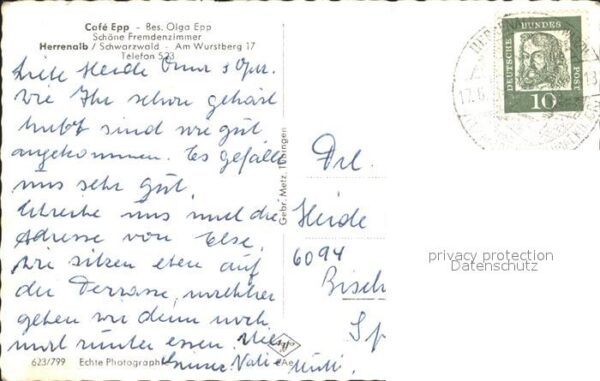 Café Epp - Bes. Olga Epp
Schöne Fremdenzimmer
Herrenalb / Schwarzwald - Am Wurstberg 17
Telefon 523
Liebe Heide Oma Opa.
Wie Ihr schon gehört
habt sind wir gut
angekommen. Es gefällt
uns sehr gut.
Schreibe uns mal die
Adresse von Else.
Wir sitzen eben auf
der Terrasse, nachher
gehen wir dann noch
mal runter essen. Viele
Grüße Vati Mutti
623/799 Echte Photograph
Gebr. Metz, Tübingen
Agfa
DEUTSCHE BUNDES POST
10
17.6.
Heide
6094
Bisch
privacy protection
Datenschutz